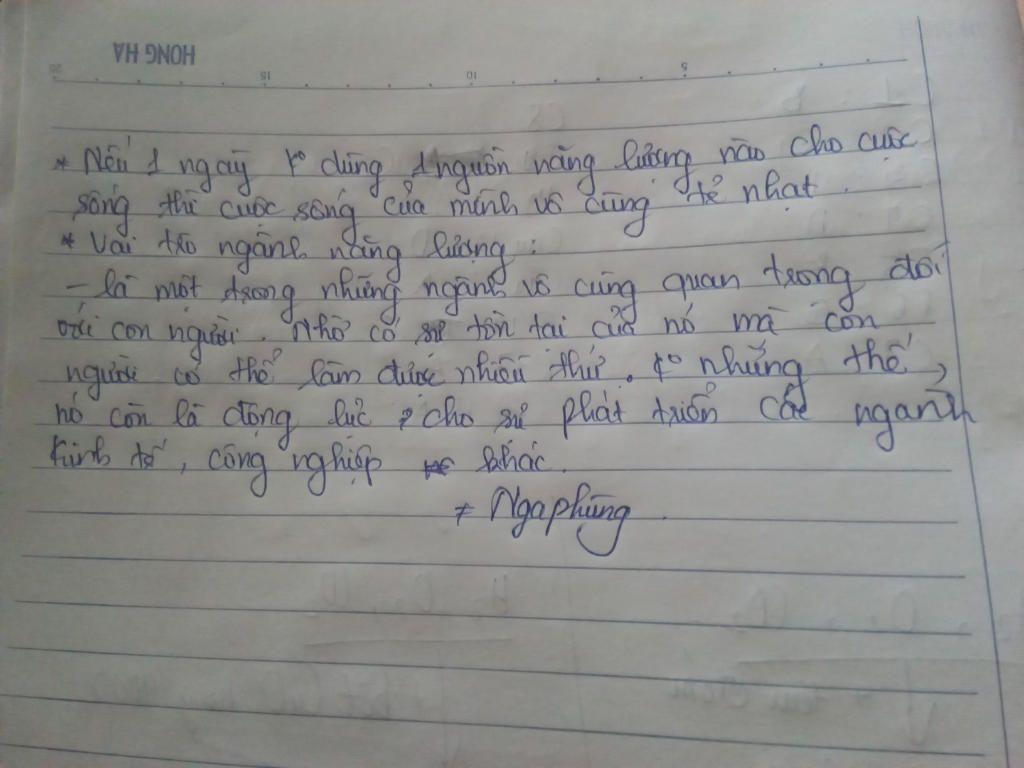 HONG HA
20 15 10 5
* Nếu 1 ngày k° dùng 1 nguồn năng lượng nào cho cuộc
sống thì cuộc sống của mình vô cùng tẻ nhạt.
* Vai trò ngành năng lượng:
- là một trong những ngành vô cùng quan trọng đối
với con người. Nhờ có sự tồn tại của nó mà con
người có thể làm được nhiều thứ. k° những thế,
nó còn là động lực cho sự phát triển các ngành
kinh tế, công nghiệp khác.
≠ Ngaphùng.